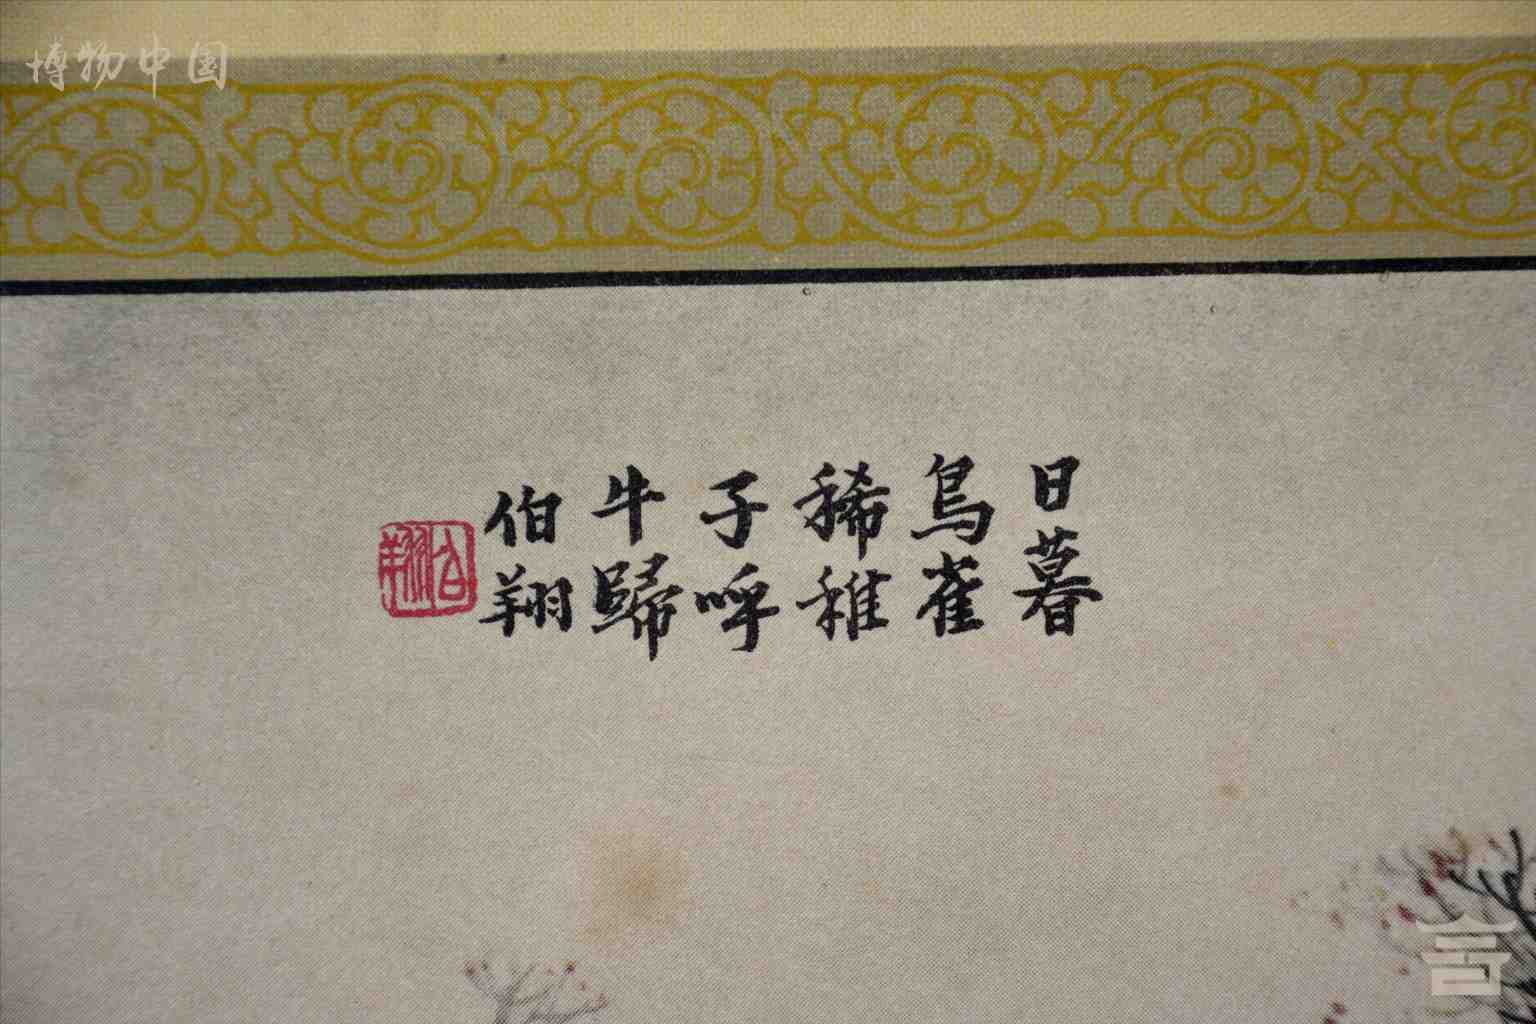 博物中国
日暮
鳥雀
稀稚
子呼
牛歸
伯翔
伯翔